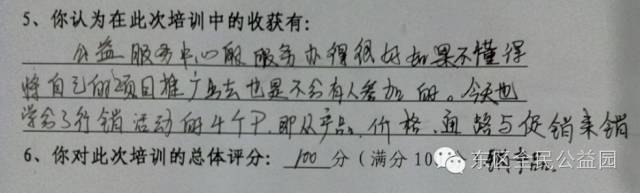 5、你认为在此次培训中的收获有:
公益服务中心的服务办得很好如果不懂得
将自己的项目推广出去也是不会有人参加的。今天也
学会了行销活动的4个P,即从产品、价格、通路与促销来销
6、你对此次培训的总体评分: 100 分(满分10
东区全民公益园